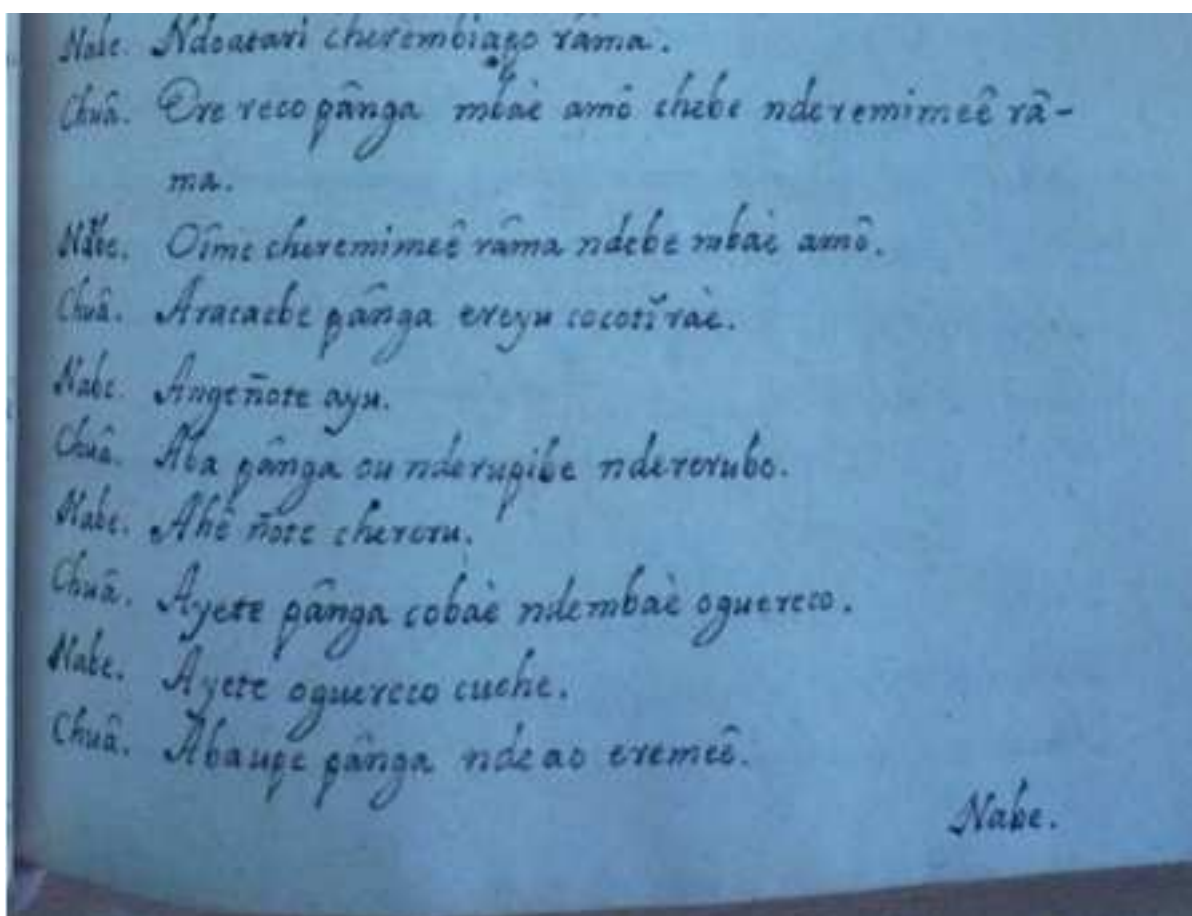 Nabe. Ndoatari cherembiapo râma.
Chuâ. Ere reco pânga mbaè amô chebe nderemimeê râ-
ma.
Nabe. Oîme cheremimeê râma ndebe mbaè amô.
Chuâ. Aracaebe pânga ereyu cocotĭ raè.
Nabe. Angeñote ayu.
Chuâ. Aba pânga ou nderupibe ndererubo.
Nabe. Ahê ñote chereru.
Chuâ. Ayete pânga cobaè ndembaè oguereco.
Nabe. Ayete oguereco cuehe.
Chuâ. Abaupe pânga ndeao eremeê.
Nabe.